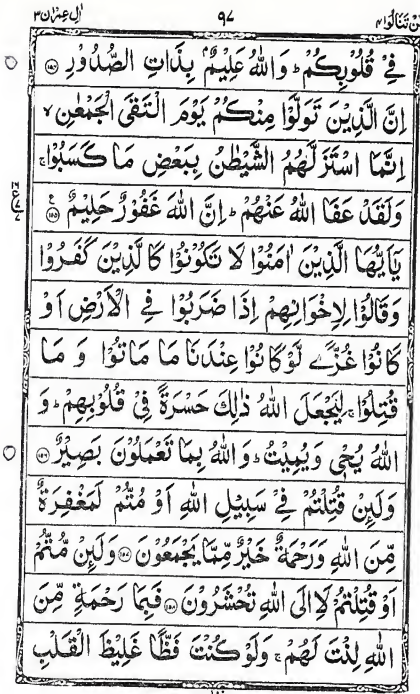 اٰل عمرٰن ٣ ٩٧ لن تنالوا ٤
فِیْ قُلُوْبِكُمْ ؕ وَاللّٰهُ عَلِیْمٌۢ بِذَاتِ الصُّدُوْرِ ﴿۱۵۴﴾
اِنَّ الَّذِیْنَ تَوَلَّوْا مِنْكُمْ یَوْمَ الْتَقَی الْجَمْعٰنِ ۙ
اِنَّمَا اسْتَزَلَّهُمُ الشَّیْطٰنُ بِبَعْضِ مَا كَسَبُوْا ۚ
وَلَقَدْ عَفَا اللّٰهُ عَنْهُمْ ؕ اِنَّ اللّٰهَ غَفُوْرٌ حَلِیْمٌ ﴿۱۵۵﴾
یٰۤاَیُّهَا الَّذِیْنَ اٰمَنُوْا لَا تَكُوْنُوْا كَالَّذِیْنَ كَفَرُوْا
وَقَالُوْا لِاِخْوَانِهِمْ اِذَا ضَرَبُوْا فِی الْاَرْضِ اَوْ
كَانُوْا غُزًّی لَّوْ كَانُوْا عِنْدَنَا مَا مَاتُوْا وَ مَا
قُتِلُوْا ۚ لِیَجْعَلَ اللّٰهُ ذٰلِكَ حَسْرَةً فِیْ قُلُوْبِهِمْ ؕ وَ
اللّٰهُ یُحْیٖ وَیُمِیْتُ ؕ وَاللّٰهُ بِمَا تَعْمَلُوْنَ بَصِیْرٌ ﴿۱۵۶﴾
وَلَئِنْ قُتِلْتُمْ فِیْ سَبِیْلِ اللّٰهِ اَوْ مُتُّمْ لَمَغْفِرَةٌ
مِّنَ اللّٰهِ وَرَحْمَةٌ خَیْرٌ مِّمَّا یَجْمَعُوْنَ ﴿۱۵۷﴾ وَلَئِنْ مُّتُّمْ
اَوْ قُتِلْتُمْ لَاِ۠الَی اللّٰهِ تُحْشَرُوْنَ ﴿۱۵۸﴾ فَبِمَا رَحْمَةٍ مِّنَ
اللّٰهِ لِنْتَ لَهُمْ ۚ وَلَوْ كُنْتَ فَظًّا غَلِیْظَ الْقَلْبِ